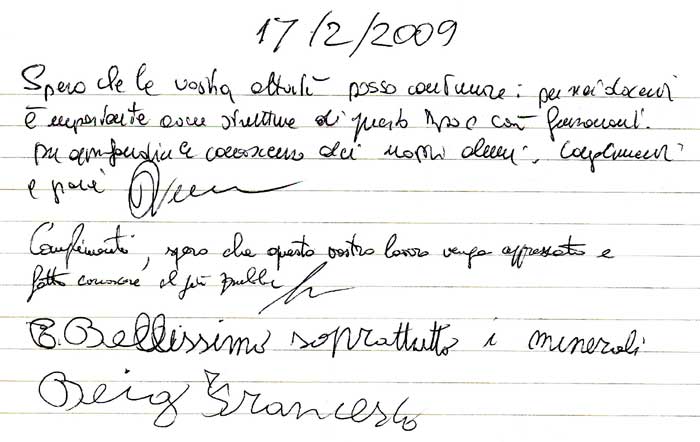 17/2/2009
Spero che la vostra attività possa continuare: per noi docenti
è importante avere strutture di questo tipo così
per approfondire le conoscenze dei nostri alunni. Complimenti
e
Complimenti, spero che questo vostro lavoro venga apprezzato e
fatto conoscere al più
E. Bellissimo soprattutto i minerali
Francesco